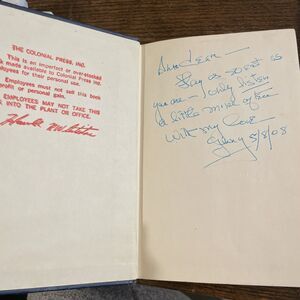 THE COLONIAL PRESS, INC.
This is an imperfect or overstocked
k made available to Colonial Press Inc.
ployees for their personal use.
Employees must not sell this book
profit or personal gain.
EMPLOYEES MAY NOT TAKE THIS
K INTO THE PLANT OR OFFICE.
Stay as sweet as
you are - only listen
a little more often
With my love
5/8/08